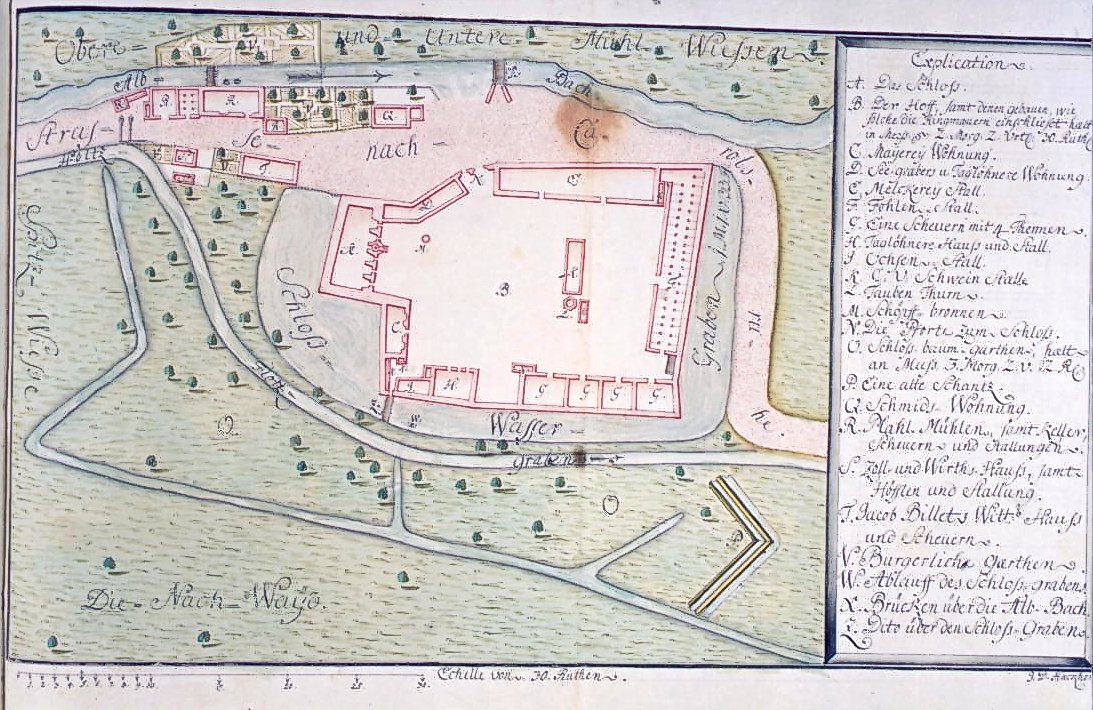 Obere - und - Untere - Mühl - Wiessen.
Alb - Bach
Stras - se - nach - Ca rols - ru he.
Spitz - Wiese
Schloß - Wasser - Graben
Flotz - graben
Die - Nach - Wayd.
Explication.
A. Das Schloss.
B. Der Hoff, samt denen gebäuen, wie
solche die Ringmauern einschlieset hält
in Mess 2. Morg. 2. Vrtl. 30. Ruth
C. Mayerey Wohnung.
D. See-gräbers u Taglöhners Wohnung.
E. Melckerey Stall.
F. Fohlen - Stall.
G. Eine Scheuern mit 4 Thennen.
H. Taglöhners Hauss und Stall.
J. Ochsen - Stall.
K. G. V. Schwein Ställe
L. Tauben Thurn.
M. Schöpff - bronnen.
N. Die Pforte zum Schloss.
O. Schloss baum - garthen, hält
an Mess. 3. Morg. 2. V. 12 R
P. Eine alte Schantz.
Q. Schmids - Wohnung.
R. Mahl Mühlen, samt Keller,
Scheuern und Stallungen.
S. Zoll und Wirths Hauss, samt
Höfflen und Stallung.
T. Jacob Billets Witt: Hauss
und Scheuern.
V. Burgerliche Gærthen.
W. Ablauff des Schloss - grabens
X. Brücken über die Alb - Bach
Z. Dito über den Schloss - Graben.
Echelle von 30. Ruthen.